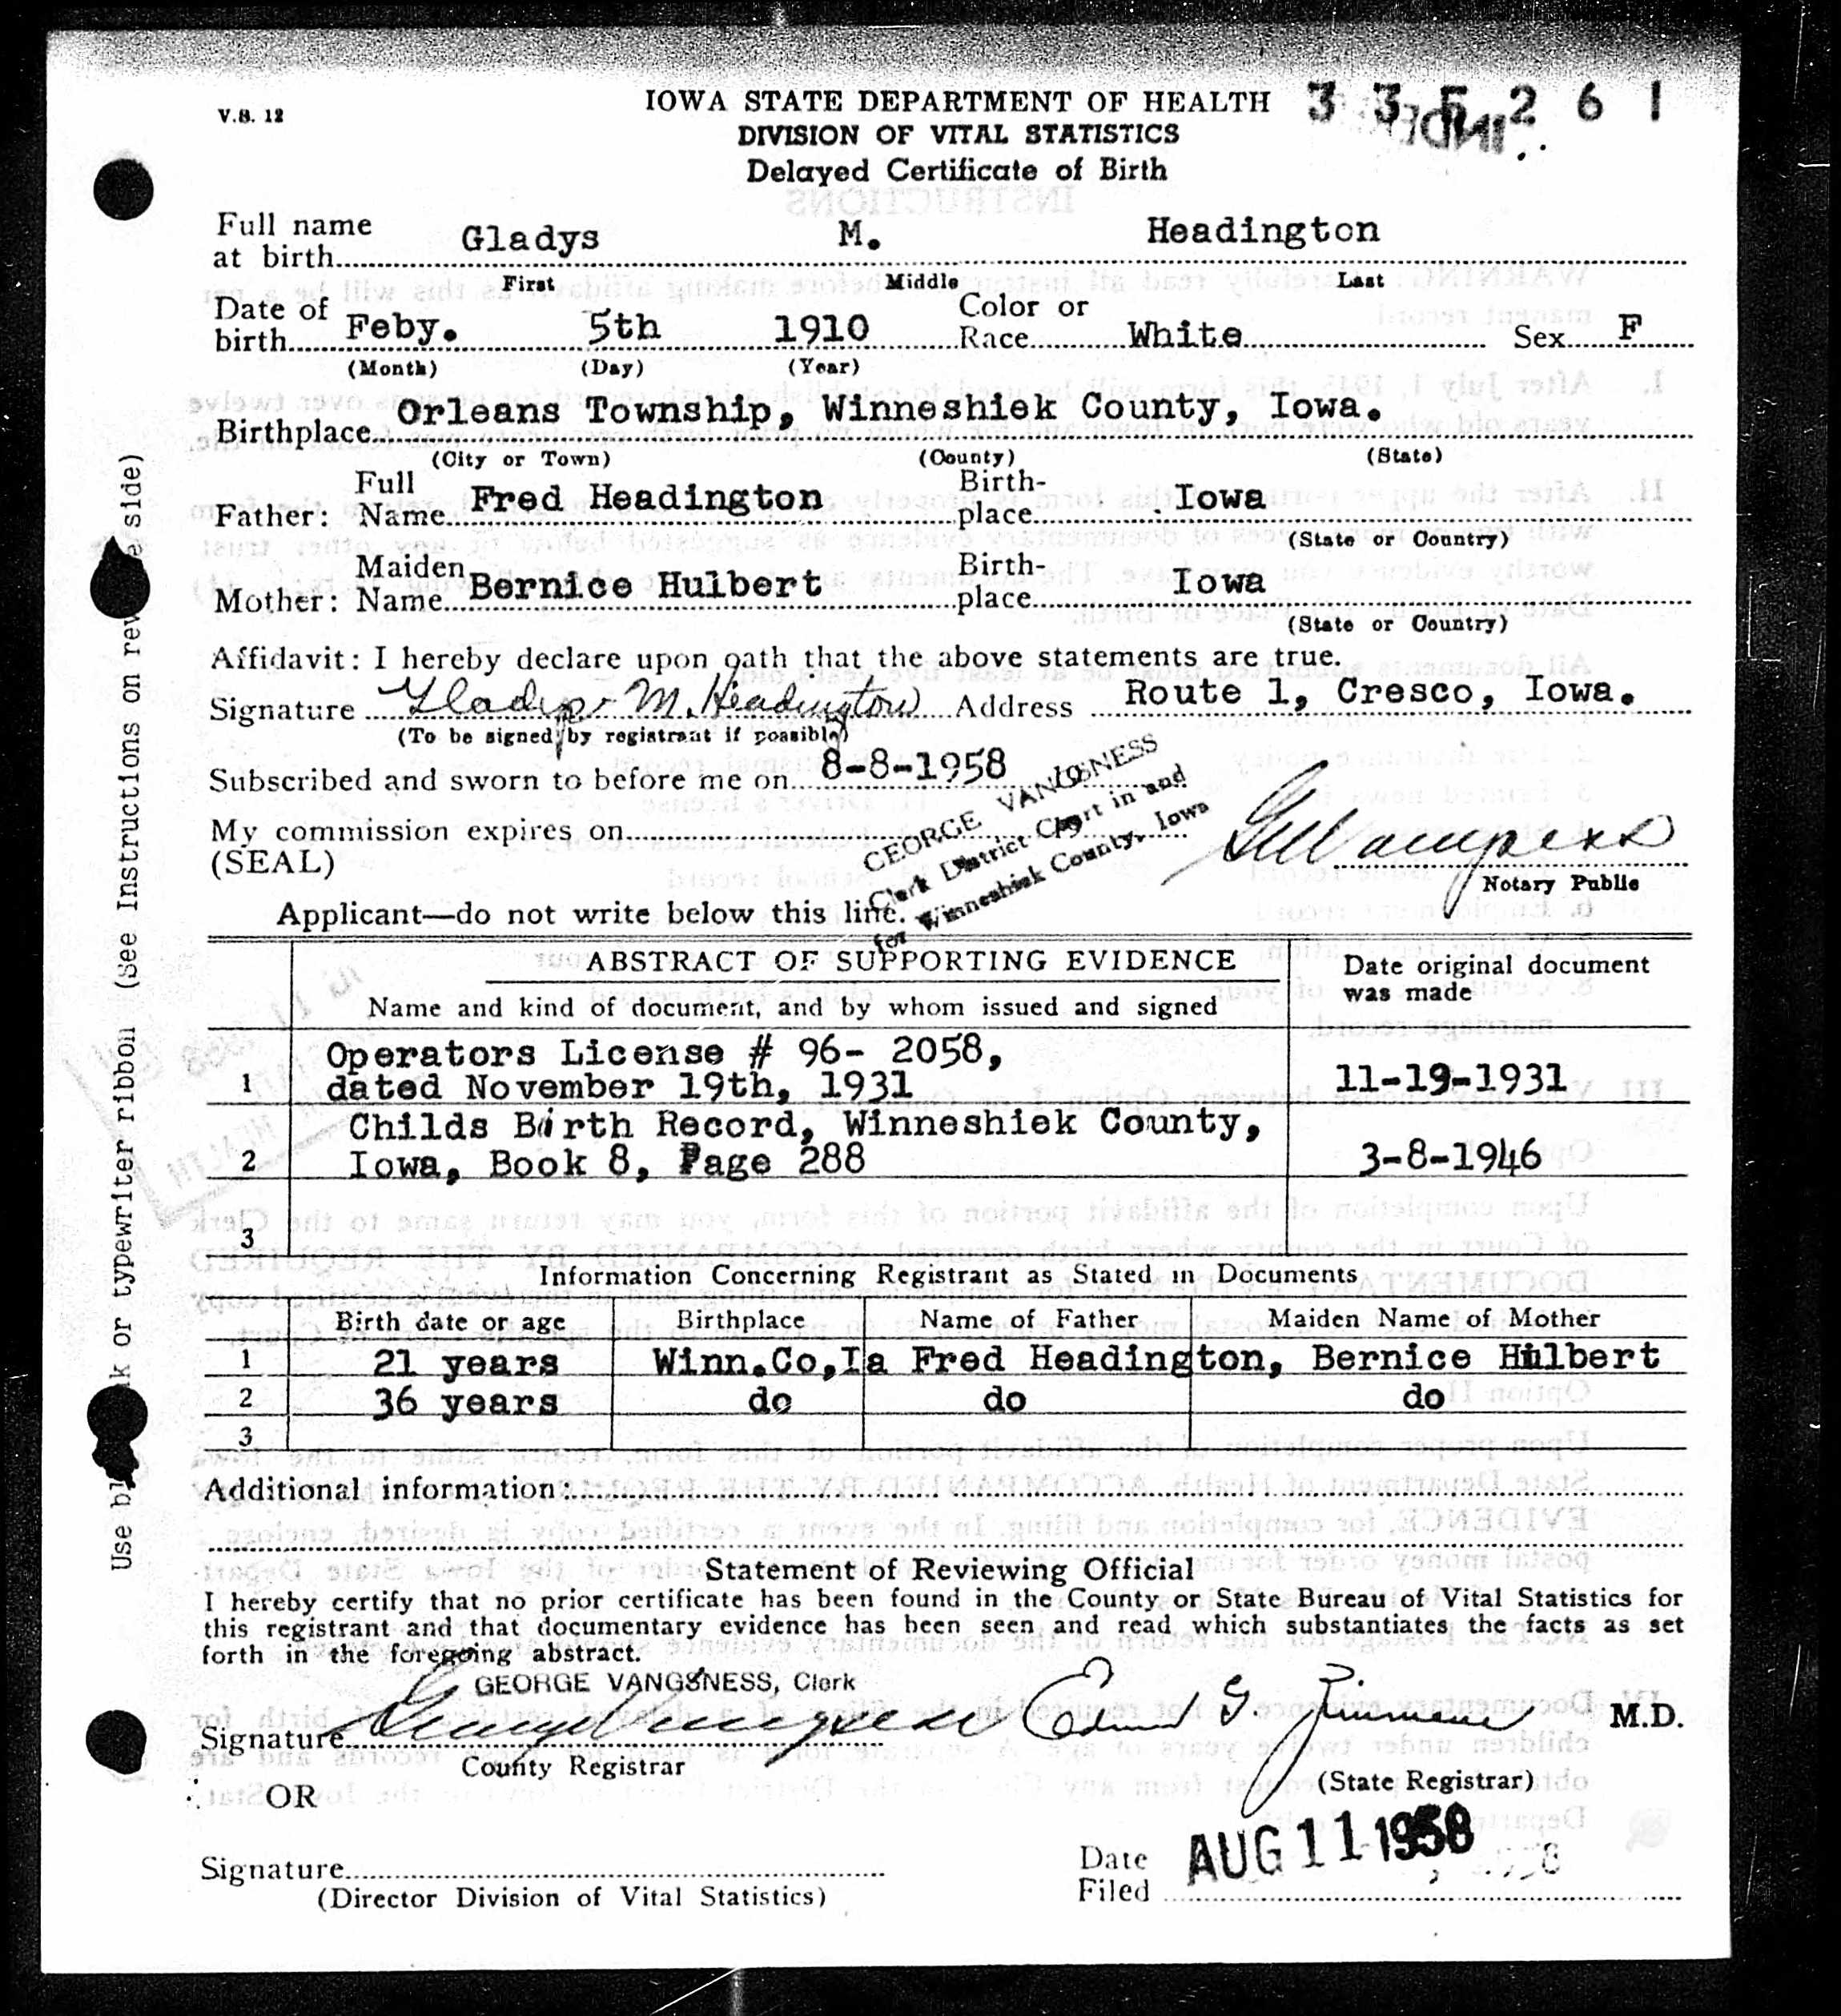 V.S. 12
IOWA STATE DEPARTMENT OF HEALTH
DIVISION OF VITAL STATISTICS
Delayed Certificate of Birth
335261
Full name
at birth Gladys M. Headington
First Middle Last
Date of
birth Feby. 5th 1910 Color or
Race White Sex F
(Month) (Day) (Year)
Birthplace Orleans Township, Winneshiek County, Iowa.
(City or Town) (County) (State)
Father: Full
Name Fred Headington Birth-
place Iowa
(State or Country)
Mother: Maiden
Name Bernice Hulbert Birth-
place Iowa
(State or Country)
Affidavit: I hereby declare upon oath that the above statements are true.
Signature Gladys M. Headington Address Route 1, Cresco, Iowa.
(To be signed by registrant if possible)
Subscribed and sworn to before me on 8-8-1958
My commission expires on
(SEAL)
GEORGE VANGSNESS
Clerk District Court in and
for Winneshiek County, Iowa
Notary Public
Applicant—do not write below this line.
ABSTRACT OF SUPPORTING EVIDENCE
Name and kind of document, and by whom issued and signed
Date original document
was made
1 Operators License # 96- 2058,
dated November 19th, 1931 11-19-1931
2 Childs Birth Record, Winneshiek County,
Iowa, Book 8, Page 288 3-8-1946
3
Information Concerning Registrant as Stated in Documents
Birth date or age Birthplace Name of Father Maiden Name of Mother
1 21 years Winn.Co,Ia Fred Headington, Bernice Hulbert
2 36 years do do do
3
Additional information:
Statement of Reviewing Official
I hereby certify that no prior certificate has been found in the County or State Bureau of Vital Statistics for
this registrant and that documentary evidence has been seen and read, which substantiates the facts as set
forth in the foregoing abstract.
GEORGE VANGSNESS, Clerk
Signature George Vangsness
County Registrar
M.D.
(State Registrar)
OR
Signature
(Director Division of Vital Statistics)
Date
Filed AUG 11 1958
or typewriter ribbon (See Instructions on